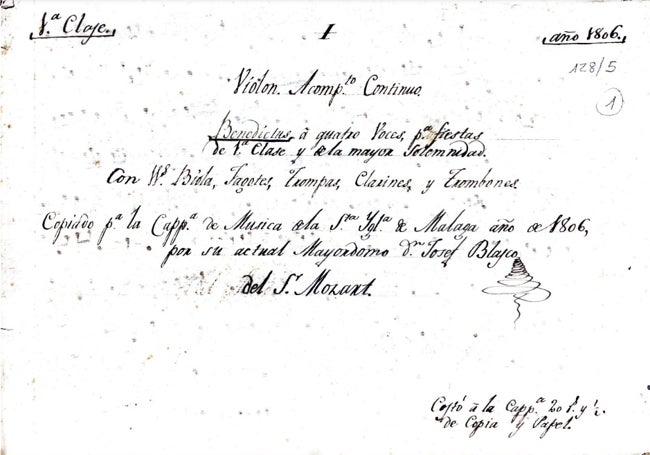 1.ª Clase.
I
año 1806.
128/5
1
Violon. Acomp.to Continuo.
Benedictus, à quatro Voces, p.ª fiestas
de 1.ª Clase y de la mayor Solemnidad.
Con Vs. Biola, Fagotes, Trompas, Clarines, y Trombones.
Copiado p.ª la Capp.ª de Musica de la S.ta Ygl.ª de Malaga año de 1806,
por su actual Mayordomo d.n Josef Blasco
del S.r Mozart.
Costó â la Capp.ª 20 r. y ½
de Copia y Papel.